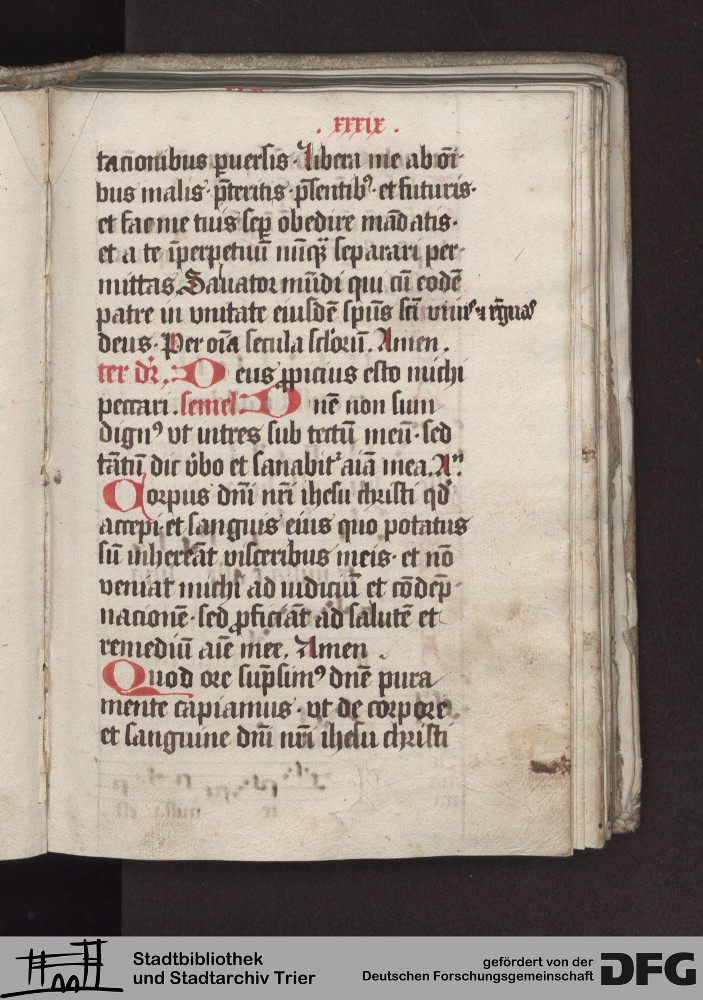 . xxxix .
tacionibus ꝑuersis · Libera me ab oı̄
bus malis · p̄teritis · p̄sentibꝰ · et futuris ·
et fac me tuis semꝑ obedire mādatis ·
et a te īperpetuū nūqᷓ separari per
mittas. Saluator mūdi qui cū eodē
patre in vnitate eiusdē spūs sc̄i viuis ⁊ rēgnas
deus · Per oı̄a secula sc̄loruū. Amen.
ter dr̄. Deus ꝓpicius esto michi
peccari. semel. Dn̄e non sum
dignꝰ vt intres sub tectū meū · sed
tātū dic v̄bo et sanabitᷣ aı̄a mea. Aⁿ.
Corpus dn̄i nr̄i ihesu christi qd̓
accepi · et sanguis eius quo potatus
sū inhereāt visceribus meis · et nō
veniat michi ad iudiciū et cōdēp
nacionē · sed ꝓficiāt ad salutē et
remediū aīe mee. Amen.
Quod ore sūpsimꝰ dn̄e pura
mente capiamus · vt de corpore
et sanguine dn̄i nr̄i ihesu christi
Stadtbibliothek
und Stadtarchiv Trier
gefördert von der
Deutschen Forschungsgemeinschaft
DFG